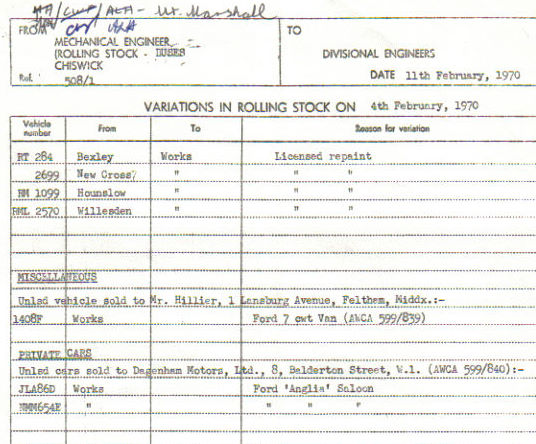 Mr. Marshall
FROM
TO
MECHANICAL ENGINEER
(ROLLING STOCK - BUSES
CHISWICK
DIVISIONAL ENGINEERS
Ref. 508/1
DATE 11th February, 1970
VARIATIONS IN ROLLING STOCK ON 4th February, 1970
Vehicle number From To Reason for variation
RT 284 Bexley Works Licensed repaint
2699 New Cross " " "
RM 1099 Hounslow " " "
RML 2570 Willesden " " "
MISCELLANEOUS
Unlsd vehicle sold to Mr. Hillier, 1 Lansburg Avenue, Feltham, Middx.:-
1408F Works Ford 7 cwt Van (AWCA 599/839)
PRIVATE CARS
Unlsd cars sold to Dagenham Motors, Ltd., 8, Balderton Street, W.1. (AWCA 599/840):-
JLA86D Works Ford 'Anglia' Saloon
NMM654E " " " "